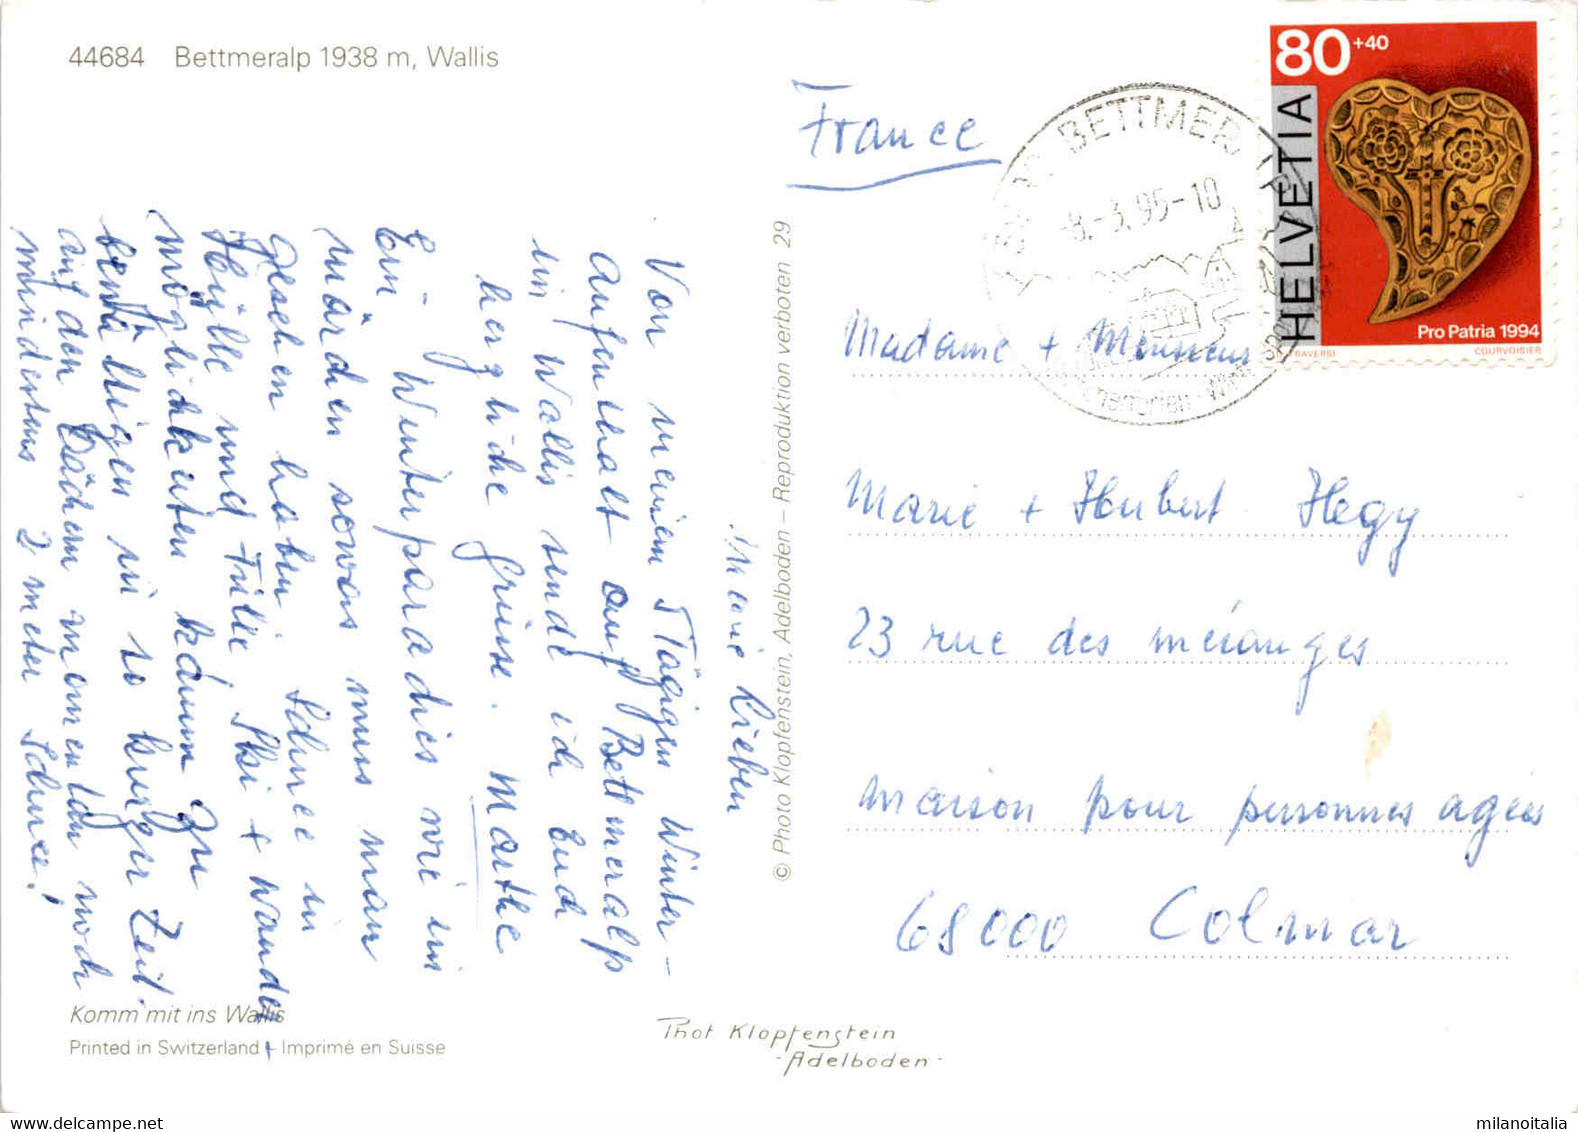 44684 Bettmeralp 1938 m, Wallis
80 +40
HELVETIA
Pro Patria 1994
TRAVERSI
COURVOISIER
BETTMERALP
-8.-3.95-10
France
Madame + Monsieur
Marie + Hubert Hegy
23 rue des mésanges
maison pour personnes agées
68000 Colmar
Meine Lieben
Von meinem 5 Tägigen Winter-
aufenthalt auf Bettmeralp
im Wallis sende ich Euch
herzliche Grüsse. Marthe
Ein Winterparadies wie im
märchen sowas muss man
gesehen haben. Schnee in
Hülle und Fülle Ski + wander
möglichkeiten kaum zu
bewältigen in so kurzer Zeit.
auf den Dächern momentan noch
mindestens 2 meter Schnee!
© Photo Klopfenstein, Adelboden – Reproduktion verboten 29
Komm mit ins Wallis
Printed in Switzerland – Imprimé en Suisse
Phot Klopfenstein
Adelboden
milanoitalia